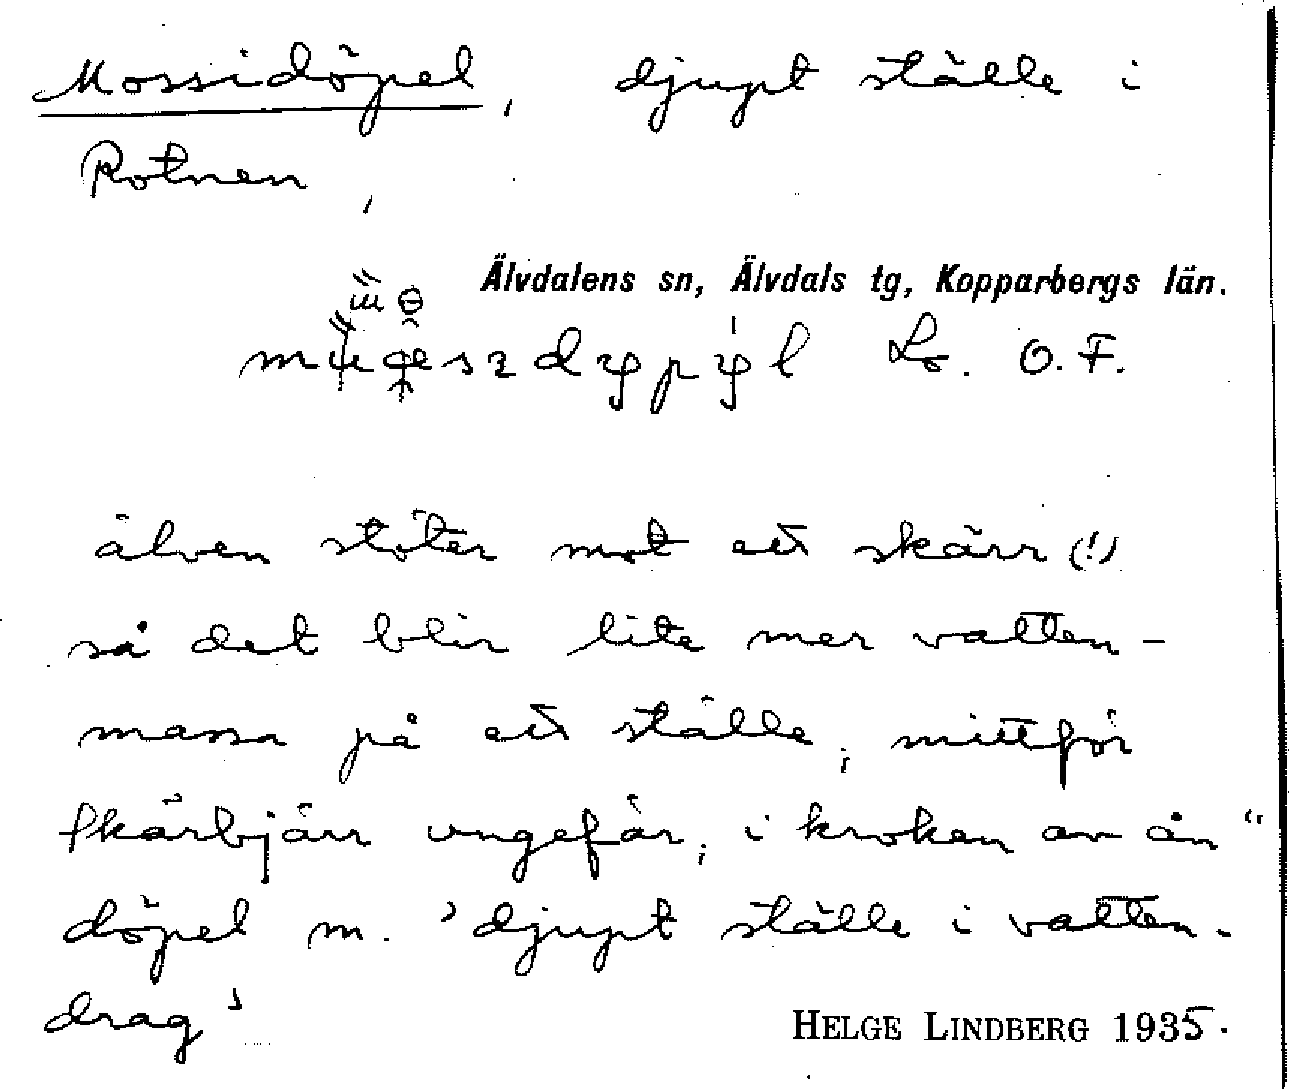 Mossidöpel, djupt ställe i
Rotnen,
Älvdalens sn, Älvdals tg, Kopparbergs län.
O. F.
älven stöter mot ett skärr (!)
så det blir lite mer vatten-
massa på ett ställe, mittför
Skärbjärr ungefär, i kroken av ån"
döpel m. 'djupt ställe i vatten-
drag'
HELGE LINDBERG 1935.